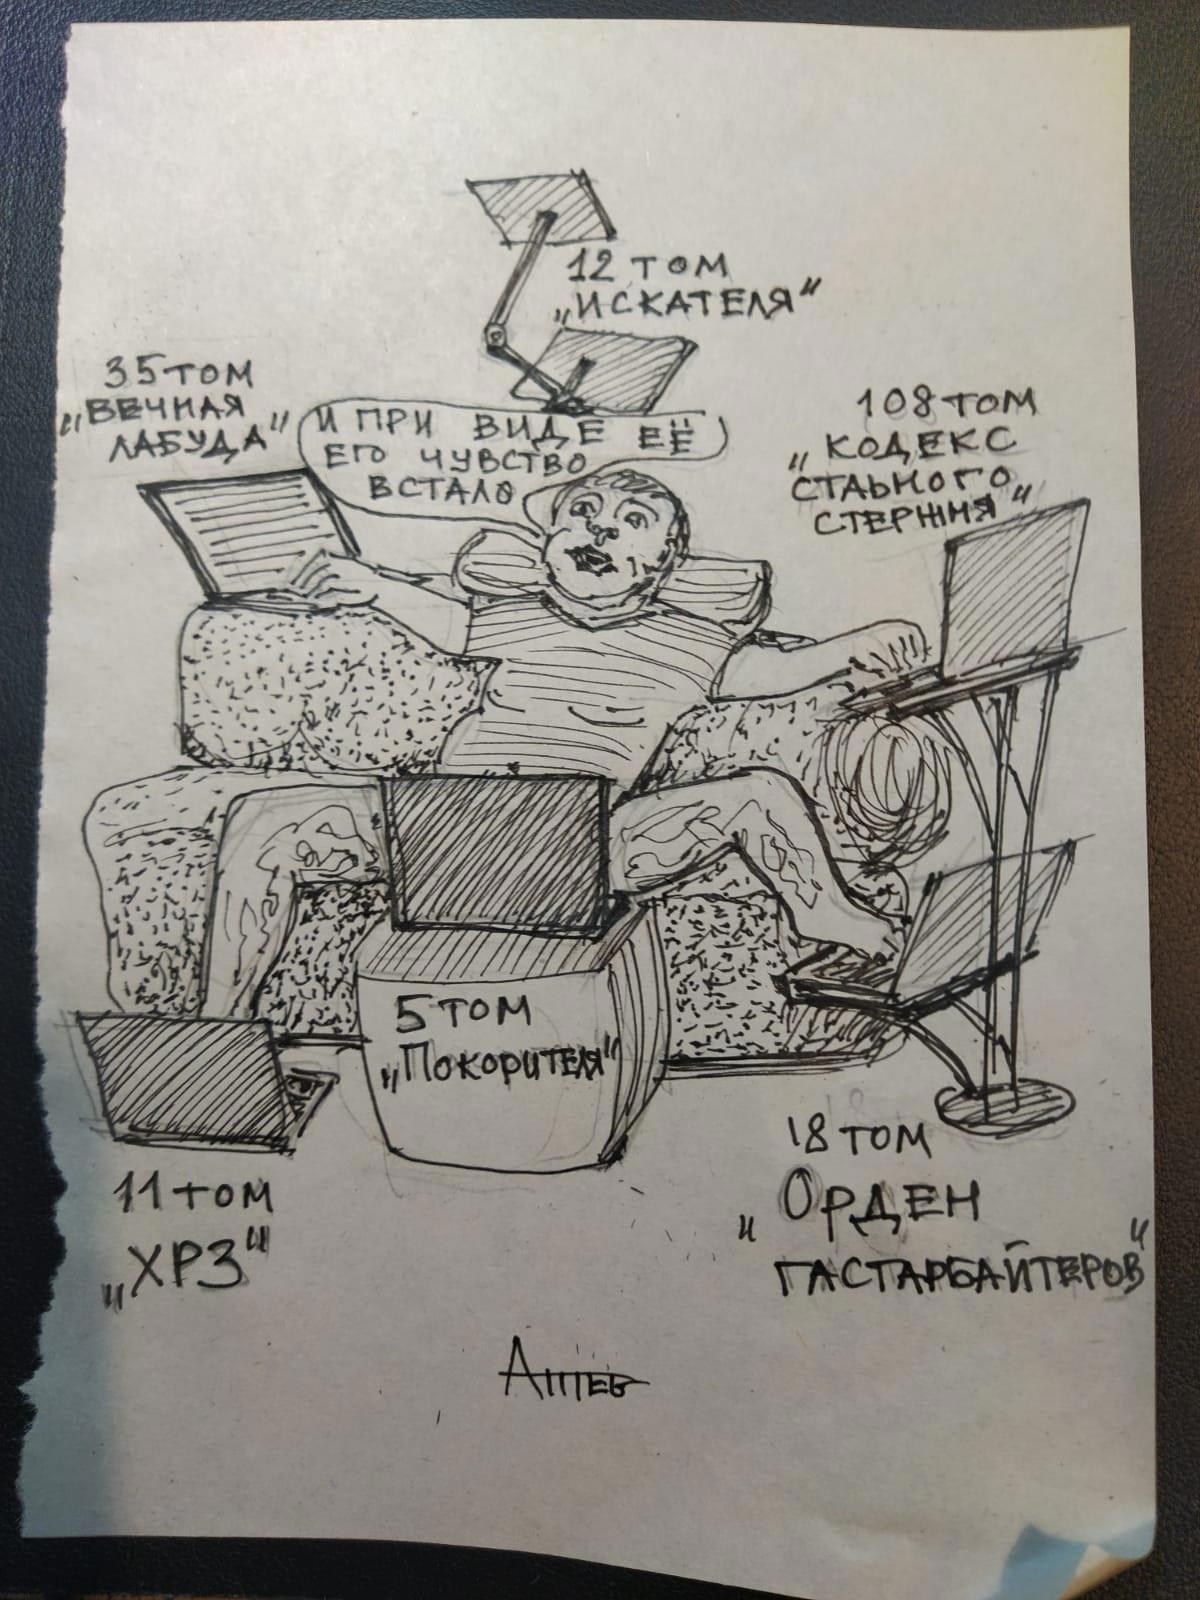 12 ТОМ
„ИСКАТЕЛЯ“
35 ТОМ
„ВЕЧНАЯ
ЛАБУДА“
И ПРИ ВИДЕ ЕЁ
ЕГО ЧУВСТВО
ВСТАЛО
108 ТОМ
„КОДЕКС
СТАЬНОГО
СТЕРЖНЯ“
5 ТОМ
„ПОКОРИТЕЛЯ“
11 ТОМ
„ХРЗ“
18 ТОМ
„ОРДЕН
ГАСТАРБАЙТЕРОВ“